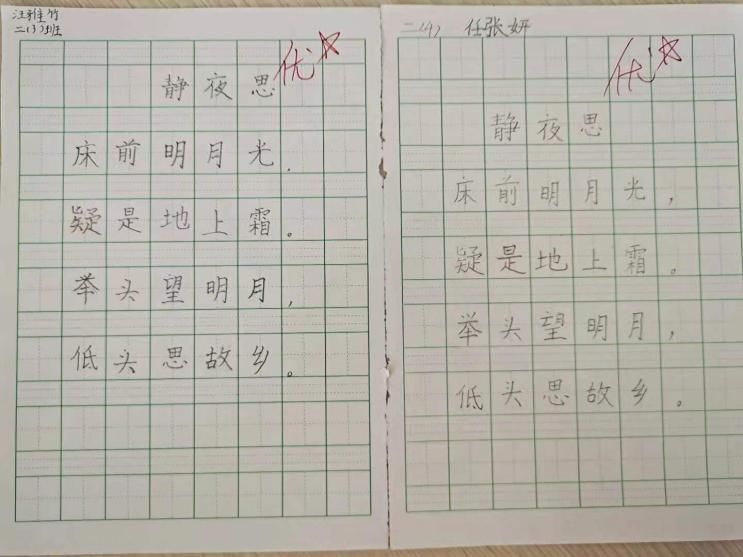 汪雅竹
二(3)班
优
静夜思
床前明月光.
疑是地上霜。
举头望明月,
低头思故乡。
二(4) 任张妍
优
静夜思
床前明月光,
疑是地上霜。
举头望明月,
低头思故乡。